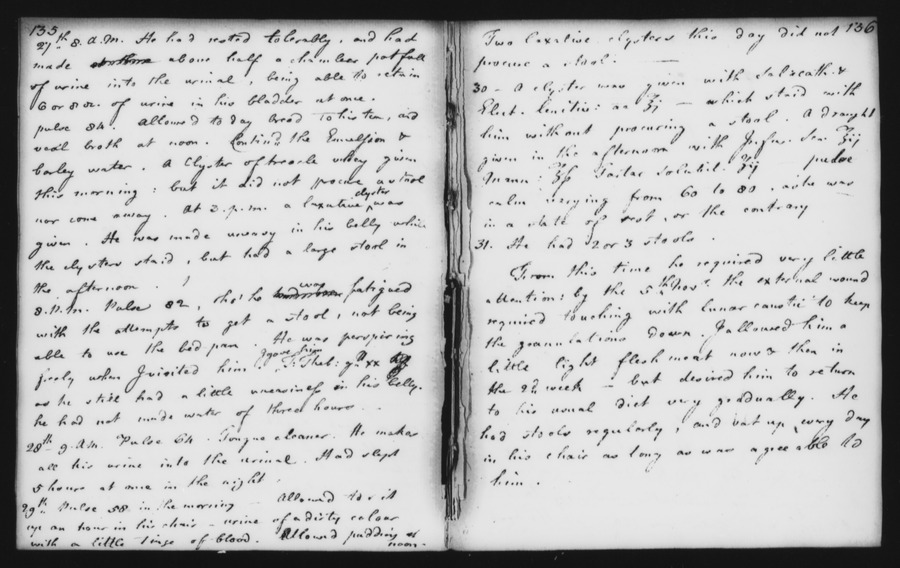 135
27th 8. a.m. He had rested tolerably, and had
made above half a chamber pot full
of urine into the urinal, being able to retain
6 or 8 oz. of urine in his bladder at once.
pulse 84. Allowed to day bread to his tea, and
veal broth at noon. Contind the Emulsion &
barley water. A Clyster of treacle whey given
this morning: but it did not procure a stool
nor come away. At 3. p.m. a laxative clyster was
given. He was made uneasy in his belly while
the clysters staid, but had a large stool in
the afternoon.
8. P.M. Pulse 82, tho' he was fatigued
with the attempts to get a stool, not being
able to use the bed pan. He was perspiring
freely when I visited him. I gave him T. Theb: gtt xx
as he still had a little uneasiness in his belly.
he had not made water of three hours.
28th 9. a.m. Pulse 64. Tongue cleaner. He makes
all his urine into the urinal. Had slept
5 hours at once in the night.
29th Pulse 58 in the morning - Allowed to sit
up an hour in his chair - urine of a dirty colour
with a little tinge of blood. Allowed pudding at
noon.
136
Two laxative clysters this day did not
procure a stool. —
30 - A clyster was given with Sal: cath. &
Elect. lenitiv: aa ℥j — which staid with
him without procuring a stool. A draught
given in the afternoon with Infus. Sen. ℥ij
Mann: ℥ß Tartar Solubil. ʒij pulse
calm varying from 60 to 80, as he was
in a state of rest, or the contrary
31. He had 2 or 3 stools.
From this time he required very little
attention: by the 5th Novr. the external wound
required touching with lunar caustic to keep
the granulations down. I allowed him a
little light flesh meat now & then in
the 2d week - but desired him to return
to his usual diet very gradually. He
had stools regularly, and sat up every day
in his chair as long as was agreeable to
him.